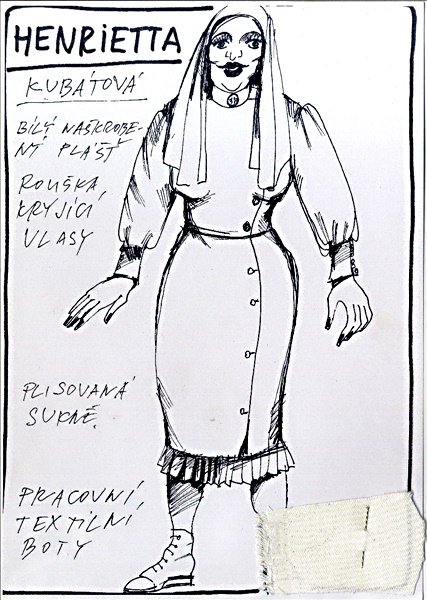 HENRIETTA
KUBÁTOVÁ
BÍLÝ NAŠKROBE-
NÝ PLÁŠŤ
ROUŠKA,
KRYJÍCÍ
VLASY
PLISOVANÁ
SUKNĚ.
PRACOVNÍ,
TEXTILNÍ
BOTY